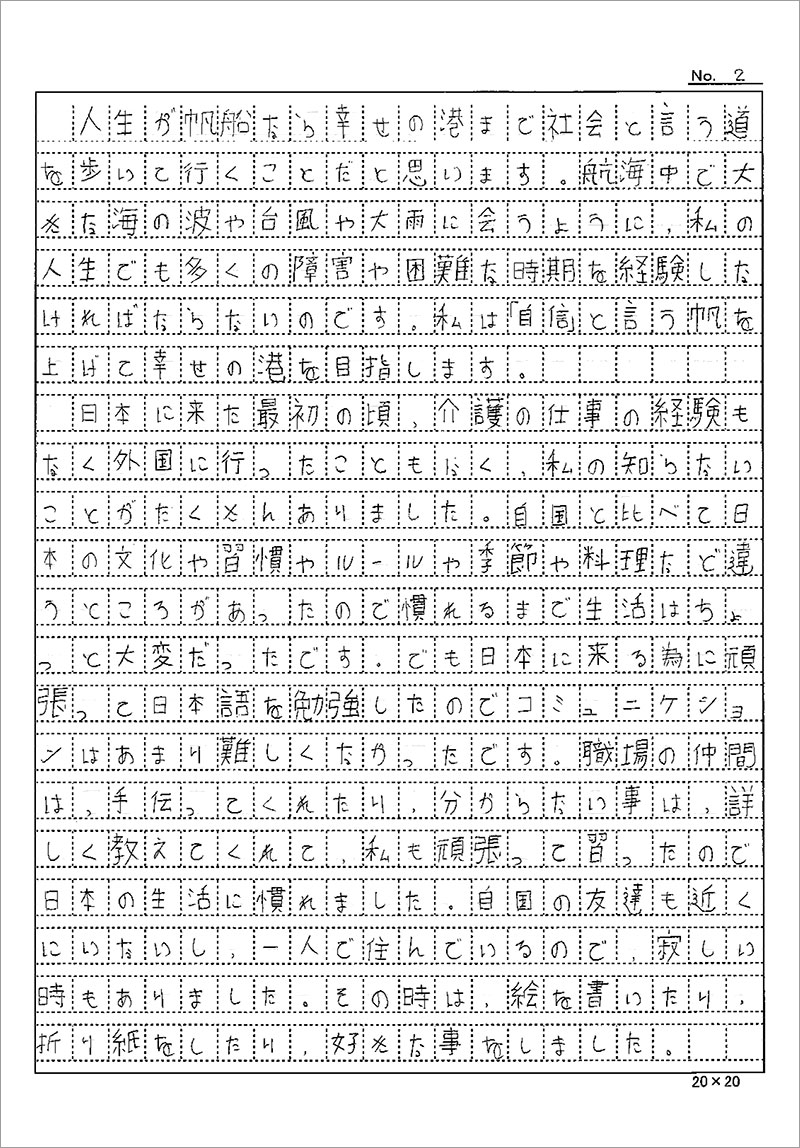 No. 2
人生が帆船なら幸せの港まで社会と言う道
を歩いて行くことだと思います。航海中で大
きな海の波や台風や大雨に会うように、私の
人生でも多くの障害や困難な時期を経験しな
ければならないのです。私は「自信」と言う帆を
上げて幸せの港を目指します。
日本に来た最初の頃、介護の仕事の経験も
なく外国に行ったこともなく、私の知らない
ことがたくさんありました。自国と比べて日
本の文化や習慣やルールや季節や料理など違
うところがあったので慣れるまで生活はちょ
っと大変だったです。でも日本に来る為に頑
張って日本語を勉強したのでコミュニケショ
ンはあまり難しくなかったです。職場の仲間
は、手伝ってくれたり、分からない事は、詳
しく教えてくれて、私も頑張って習ったので
日本の生活に慣れました。自国の友達も近く
にいないし、一人で住んでいるので、寂しい
時もありました。その時は、絵を書いたり、
折り紙をしたり、好きな事をしました。
20×20